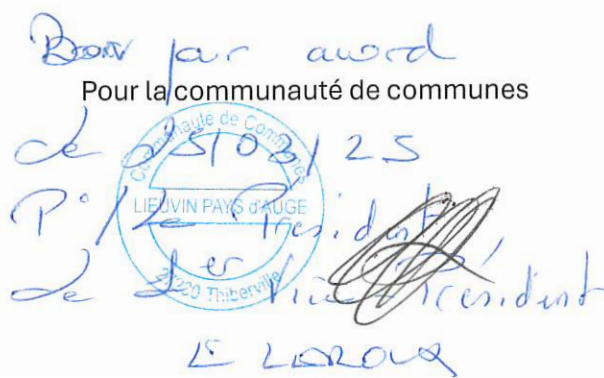 Bon pour accord
Pour la communauté de communes
Le 25/03/25
P°/Le Président
Le 1er Vice Président
Communauté de Communes
LIEUVIN PAYS d'AUGE
27230 Thiberville